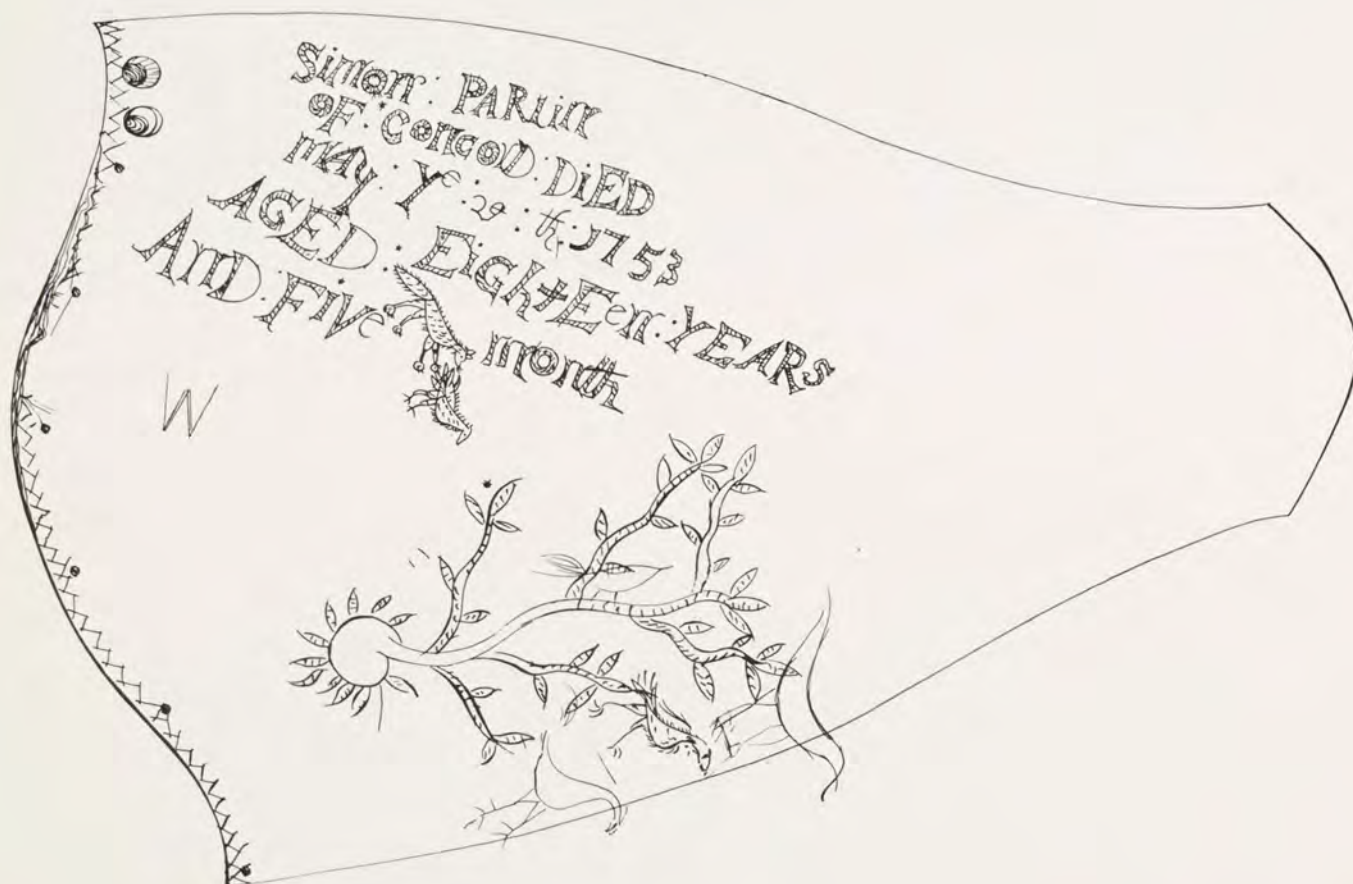 Simon : PARLin
OF : ConCoD : DiED
mAY : Ye : 29 : th : 1753
AGED : EightEen : YEARS
AnD : FiVe month
W